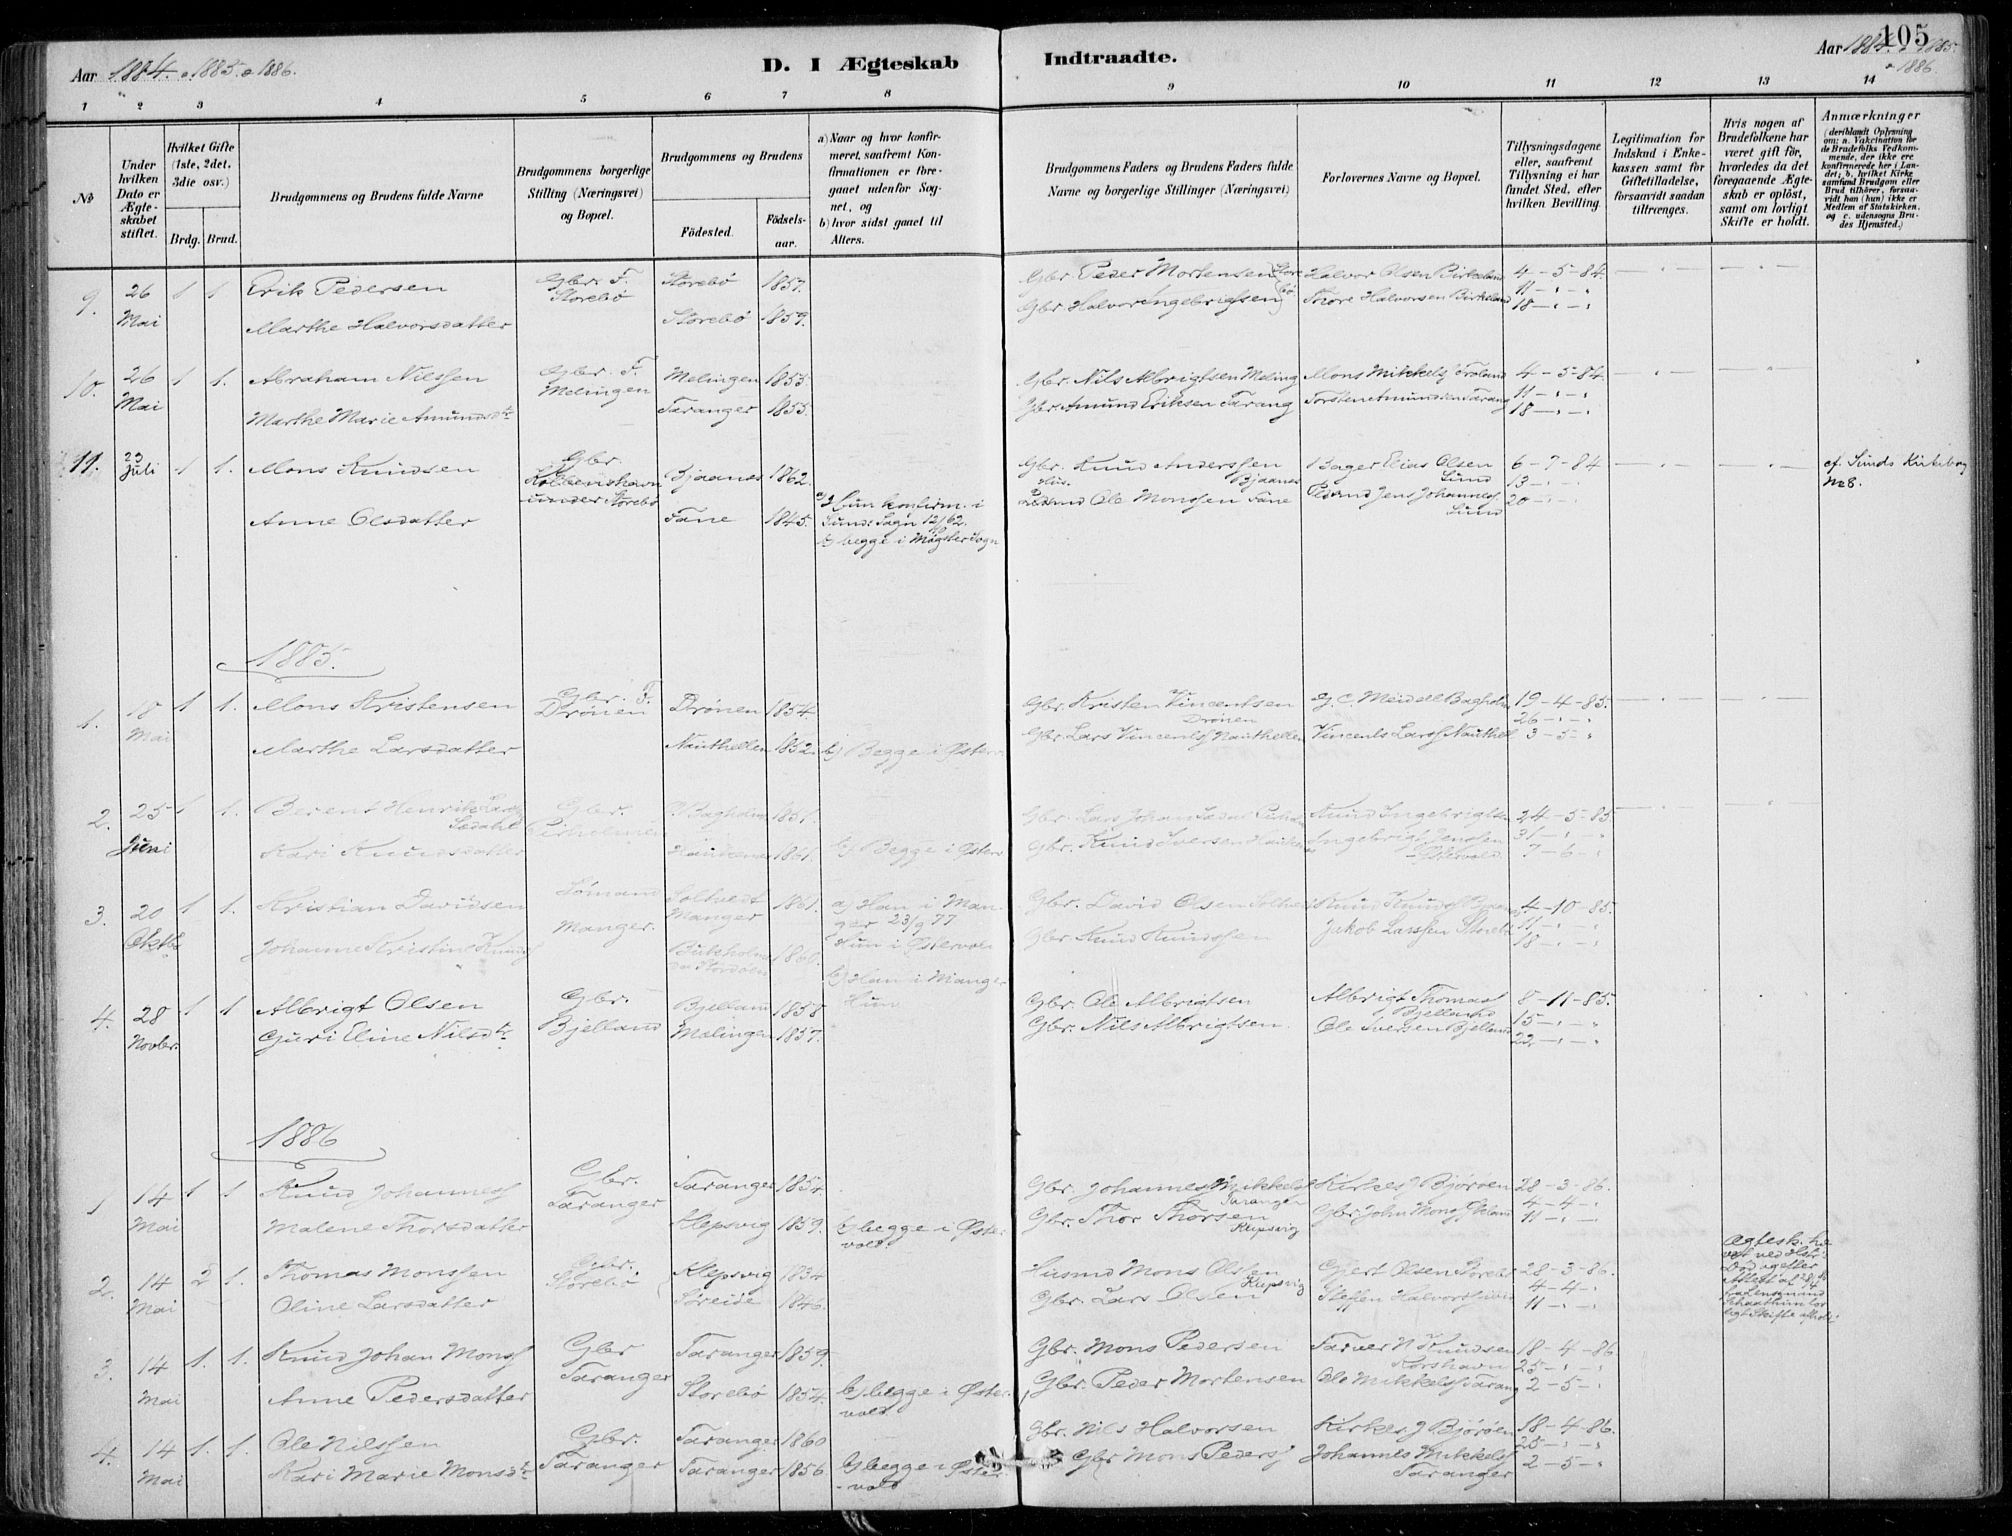 105
Aar 1884. o 1885. o 1886.
D. I Ægteskab
Indtraadte.
Aar 1884. o 1885.
o 1886.
1 2 3 4 5 6 7 8 9 10 11 12 13 14
№
Under hvilken Dato er Ægteskabet stiftet.
Hvilket Gifte (1ste, 2det, 3die osv.)
Brdg. Brud.
Brudgommens og Brudens fulde Navne
Brudgommens borgerlige Stilling (Næringsvei) og Bopæl.
Brudgommens og Brudens
Födested.
Födselsaar.
a) Naar og hvor konfirmeret, saafremt Konfirmationen er foregaaet udenfor Sognet, og
b) hvor sidst gaaet til Alters.
Brudgommens Faders og Brudens Faders fulde Navne og borgerlige Stillinger (Næringsvei)
Forlovernes Navne og Bopæl.
Tillysningsdagene eller, saafremt Tillysning ei har fundet Sted, efter hvilken Bevilling.
Legitimation for Indskud i Enkekassen samt for Giftetilladelse, forsaavidt saadan tiltrænges.
Hvis nogen af Brudefolkene har været gift för, hvorledes da det foregaaende Ægteskab er oplöst, samt om lovligt Skifte er holdt.
Anmærkninger
(deriblandt Oplysning om: a. Vakcination for de Brudefolks Vedkommende, der ikke ere konfirmerede her i Landet; b. hvilket Kirkesamfund Brudgom eller Brud tilhörer, forsaavidt han (hun) ikke er Medlem af Statskirken, og c. udensogns Brudes Hjemsted.)
9. 26 Mai 1 1. Erik Pedersen Gbr. F. Storebø Storebø 1857. Gbr. Peder Mortensen Storebø Halvor Olsen Birkeland 4-5-84.
Marthe Halvorsdatter Storebø 1859. Gbr Halvor Ingebrigtsen Thore Halvorsen Birkeland 11 - " - "
18 - " - "
10. 26 Mai 1 1. Abraham Nilssen Gbr. F. Melingen Melingen 1855. Gbr. Nils Albrigtsen Meling Mons Mikkels. Froland 4-5-84.
Marthe Marie Amundsdtr Taranger 1855. Gbr. Amund Eriksen Tarang Torsten Amundsen Tarang 11 - " - "
18 - " - "
11. 29 Juli 1 1. Mons Knudsen Gbr. Kolbenshavn under Storebø Bjaanes 1862. Gbr. Knud Anderssen Bjaanes Bager Elias Olsen Lund 6-7-84 cf. Sunds Kirkebog № 8.
Anne Olsdatter Fane 1845. a) Hun konfirm. i Sunds Sogn 12/10 62. b) begge i Møgster Sogn Husmand Ole Monssen Fane Pedersd Jens Johanness Lund 13 - " -
20 - " -
1885.
1. 18 Mai 1 1. Mons Kristensen Gbr. F. Drönen Drönen 1854. Gbr. Kristen Vincentsen Drönen G. C. Meidell Bagholm 19-4-85.
Marthe Larsdatter Nauthellen 1852. b) Begge i Østerv. Gbr. Lars Vincents Nauthellen Vincents Larss Nauthell 26 - " - "
3-5 - "
2. 25 Juni 1 1. Berent Henrik Larss Sædahl Gbr. Bagholm 1851. Knud Ingebrigtsen 24-5-85.
Kari Knudsdatter Haukenes 1861. b) Begge i Østerv. Gbr. Knud Iversen Haukenes Ingebrigt Jenssen Østervold 31 - " - "
7-6 - "
3. 20 Oktbr 1 1. Kristian Davidsen Sömand Manger. Soltvedt Manger 1861. a) Han i Manger 23/9 77 Gbr. David Olsen Soltvedt 4-10-85.
Johanne Kristine Knuds 1860. Hun i Østervold Gbr. Knud Knudssen Jakob Larssen Storebø 11 - " - "
b) Han i Manger 18 - " - "
Hun
4. 28 Novbr. 1 1 Albrigt Olsen Gbr. Bjelland Bjelland 1858 Gbr. Ole Albrigtsen Albrigt Thomass Bjelland 8-11-85.
Guri Eline Nilsdtr Melingen 1857. Gbr. Nils Albrigtsen. Ole Iversen Bjelland 15 - " - "
22 - " - "
1886
1 14 Mai 1 1 Knud Johanness Gbr. Taranger Taranger 1854. Gbr. Johannes Mikkels Taranger Kirkes. J Bjorøen 28-3-86.
Malene Thorsdatter Klepsvig 1859. b) begge i Østervold. Gbr. Thor Thorsen Klepsvig Gbr. John Monss 4-4 - "
11 - " - "
2. 14 Mai 2 1. Thomas Monssen Gbr. Storebø Klepsvig 1834 Husmd Mons Olssen Klepsvig Gjert Olsen Storebø 28-3-86.
Oline Larsdatter Søreide 1846. Gbr. Lars Olsen Steffen Halvords 4-4 - "
11 - " - "
3. 14 Mai 1. 1. Knud Johan Monss Gbr Taranger Taranger 1859. Gbr. Mons Pedersen Farver N Knudsen Korshavn 18-4-86
Anne Pedersdatter Storebø 1854. b) begge i Østervold. Gbr. Peder Mortensen Ole Mikkels Tarang 25 - " - "
2-5 - "
4. 14 Mai 1. 1. Ole Nilssen Gbr. Taranger Taranger 1860 Gbr. Nils Halvorsen Kirkes. J Bjorøen 18-4-86.
Kari Marie Monsdtr Taranger 1856. b) begge i Østervold Gbr Mons Peders Johannes Mikkels Taranger 25 - " - "
2-5 - "